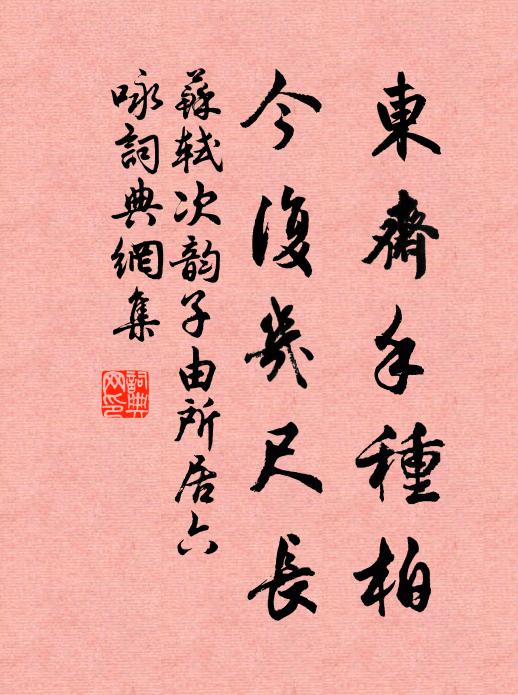 東齋手種柏
今復幾尺長
蘇軾次韵子由所居六
咏詞典網集
詞典
网印